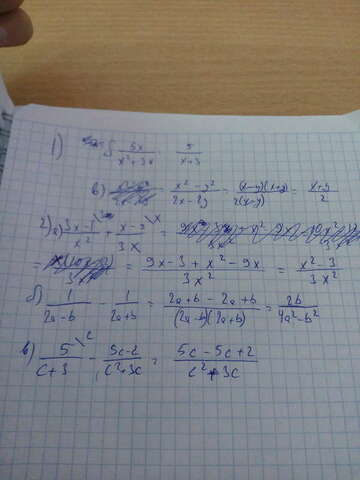 1) б) 5x/(x²+3x) = 5/(x+3)
в) (x²-y²)/(2x-2y) = ((x-y)(x+y))/(2(x-y)) = (x+y)/2
2) а) (3x-1)/x² + (x-9)/3x =
= (9x-3+x²-9x)/3x² = (x²-3)/3x²
б) 1/(2a-b) - 1/(2a+b) = (2a+b-2a+b)/((2a-b)(2a+b)) = 2b/(4a²-b²)
в) 5\c/(c+3) - (5c-2)/(c²+3c) = (5c-5c+2)/(c²+3c)